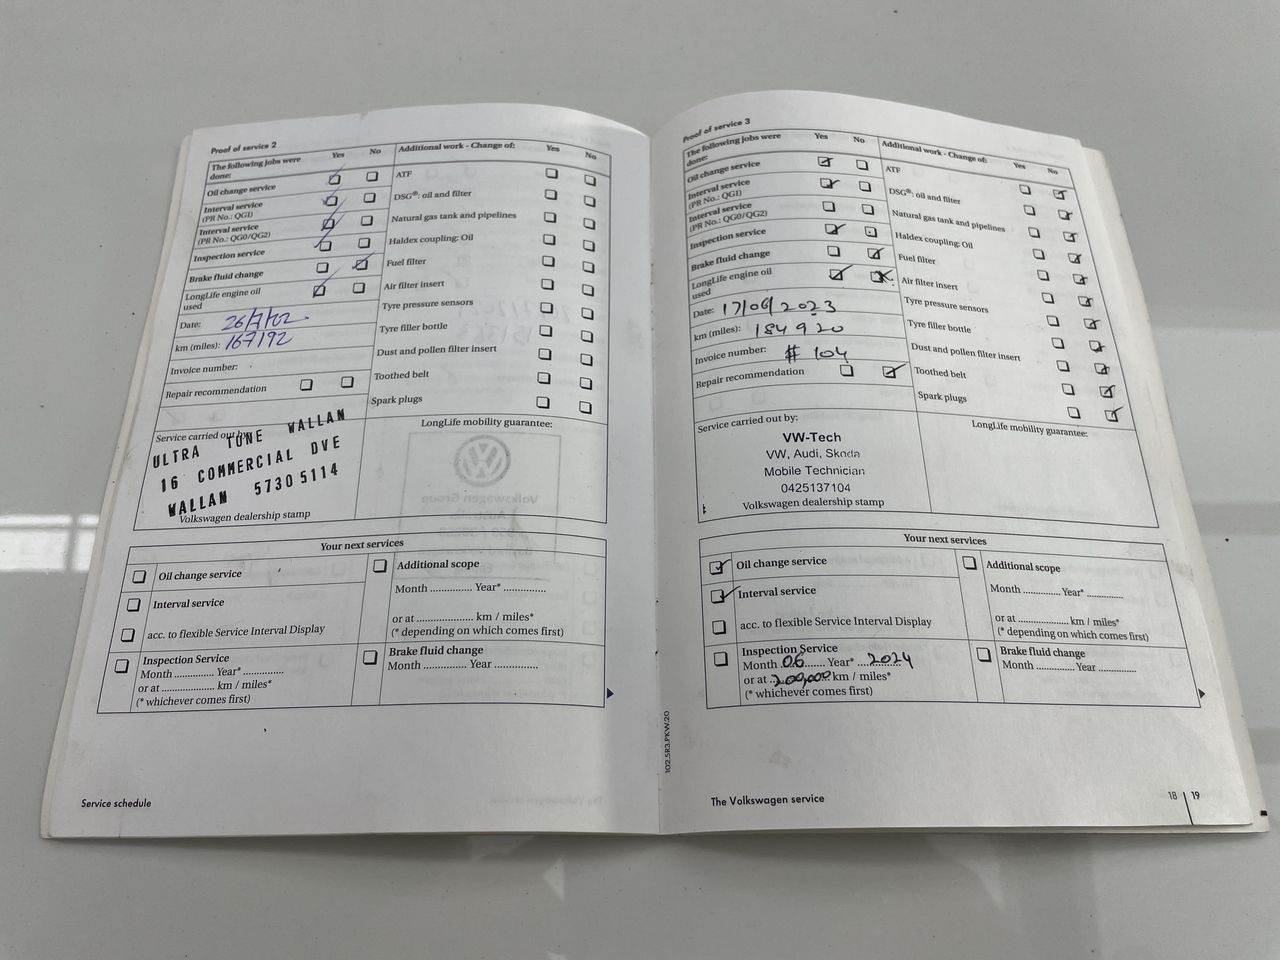 Proof of service 2
The following jobs were done:
Yes
No
Oil change service
Interval service
(PR No.: QG1)
Interval service
(PR No.: QG0/QG2)
Inspection service
Brake fluid change
LongLife engine oil used
Date:
km (miles): 167192
Invoice number:
Repair recommendation
Additional work - Change of:
Yes
No
ATF
DSG®: oil and filter
Natural gas tank and pipelines
Haldex coupling: Oil
Fuel filter
Air filter insert
Tyre pressure sensors
Tyre filler bottle
Dust and pollen filter insert
Toothed belt
Spark plugs
Service carried out by:
ULTRA TUNE WALLAN
16 COMMERCIAL DVE
WALLAN 5730 5114
Volkswagen dealership stamp
LongLife mobility guarantee:
Your next services
Oil change service
Interval service
acc. to flexible Service Interval Display
Inspection Service
Month .............. Year* ..............
or at .................. km / miles*
(* whichever comes first)
Additional scope
Month .............. Year* ..............
or at .................. km / miles*
(* depending on which comes first)
Brake fluid change
Month .............. Year ..............
Service schedule
Proof of service 3
The following jobs were done:
Yes
No
Oil change service
Interval service
(PR No.: QG1)
Interval service
(PR No.: QG0/QG2)
Inspection service
Brake fluid change
LongLife engine oil used
Date: 17/06/2023
km (miles): 184920
Invoice number: # 104
Repair recommendation
Additional work - Change of:
Yes
No
ATF
DSG®: oil and filter
Natural gas tank and pipelines
Haldex coupling: Oil
Fuel filter
Air filter insert
Tyre pressure sensors
Tyre filler bottle
Dust and pollen filter insert
Toothed belt
Spark plugs
Service carried out by:
VW-Tech
VW, Audi, Skoda
Mobile Technician
0425137104
Volkswagen dealership stamp
LongLife mobility guarantee:
Your next services
Oil change service
Interval service
acc. to flexible Service Interval Display
Inspection Service
Month 06 Year* 2024
or at 200,000 km / miles*
(* whichever comes first)
Additional scope
Month .............. Year* ..............
or at .................. km / miles*
(* depending on which comes first)
Brake fluid change
Month .............. Year ..............
102.5R3.PKW.20
The Volkswagen service
18 | 19